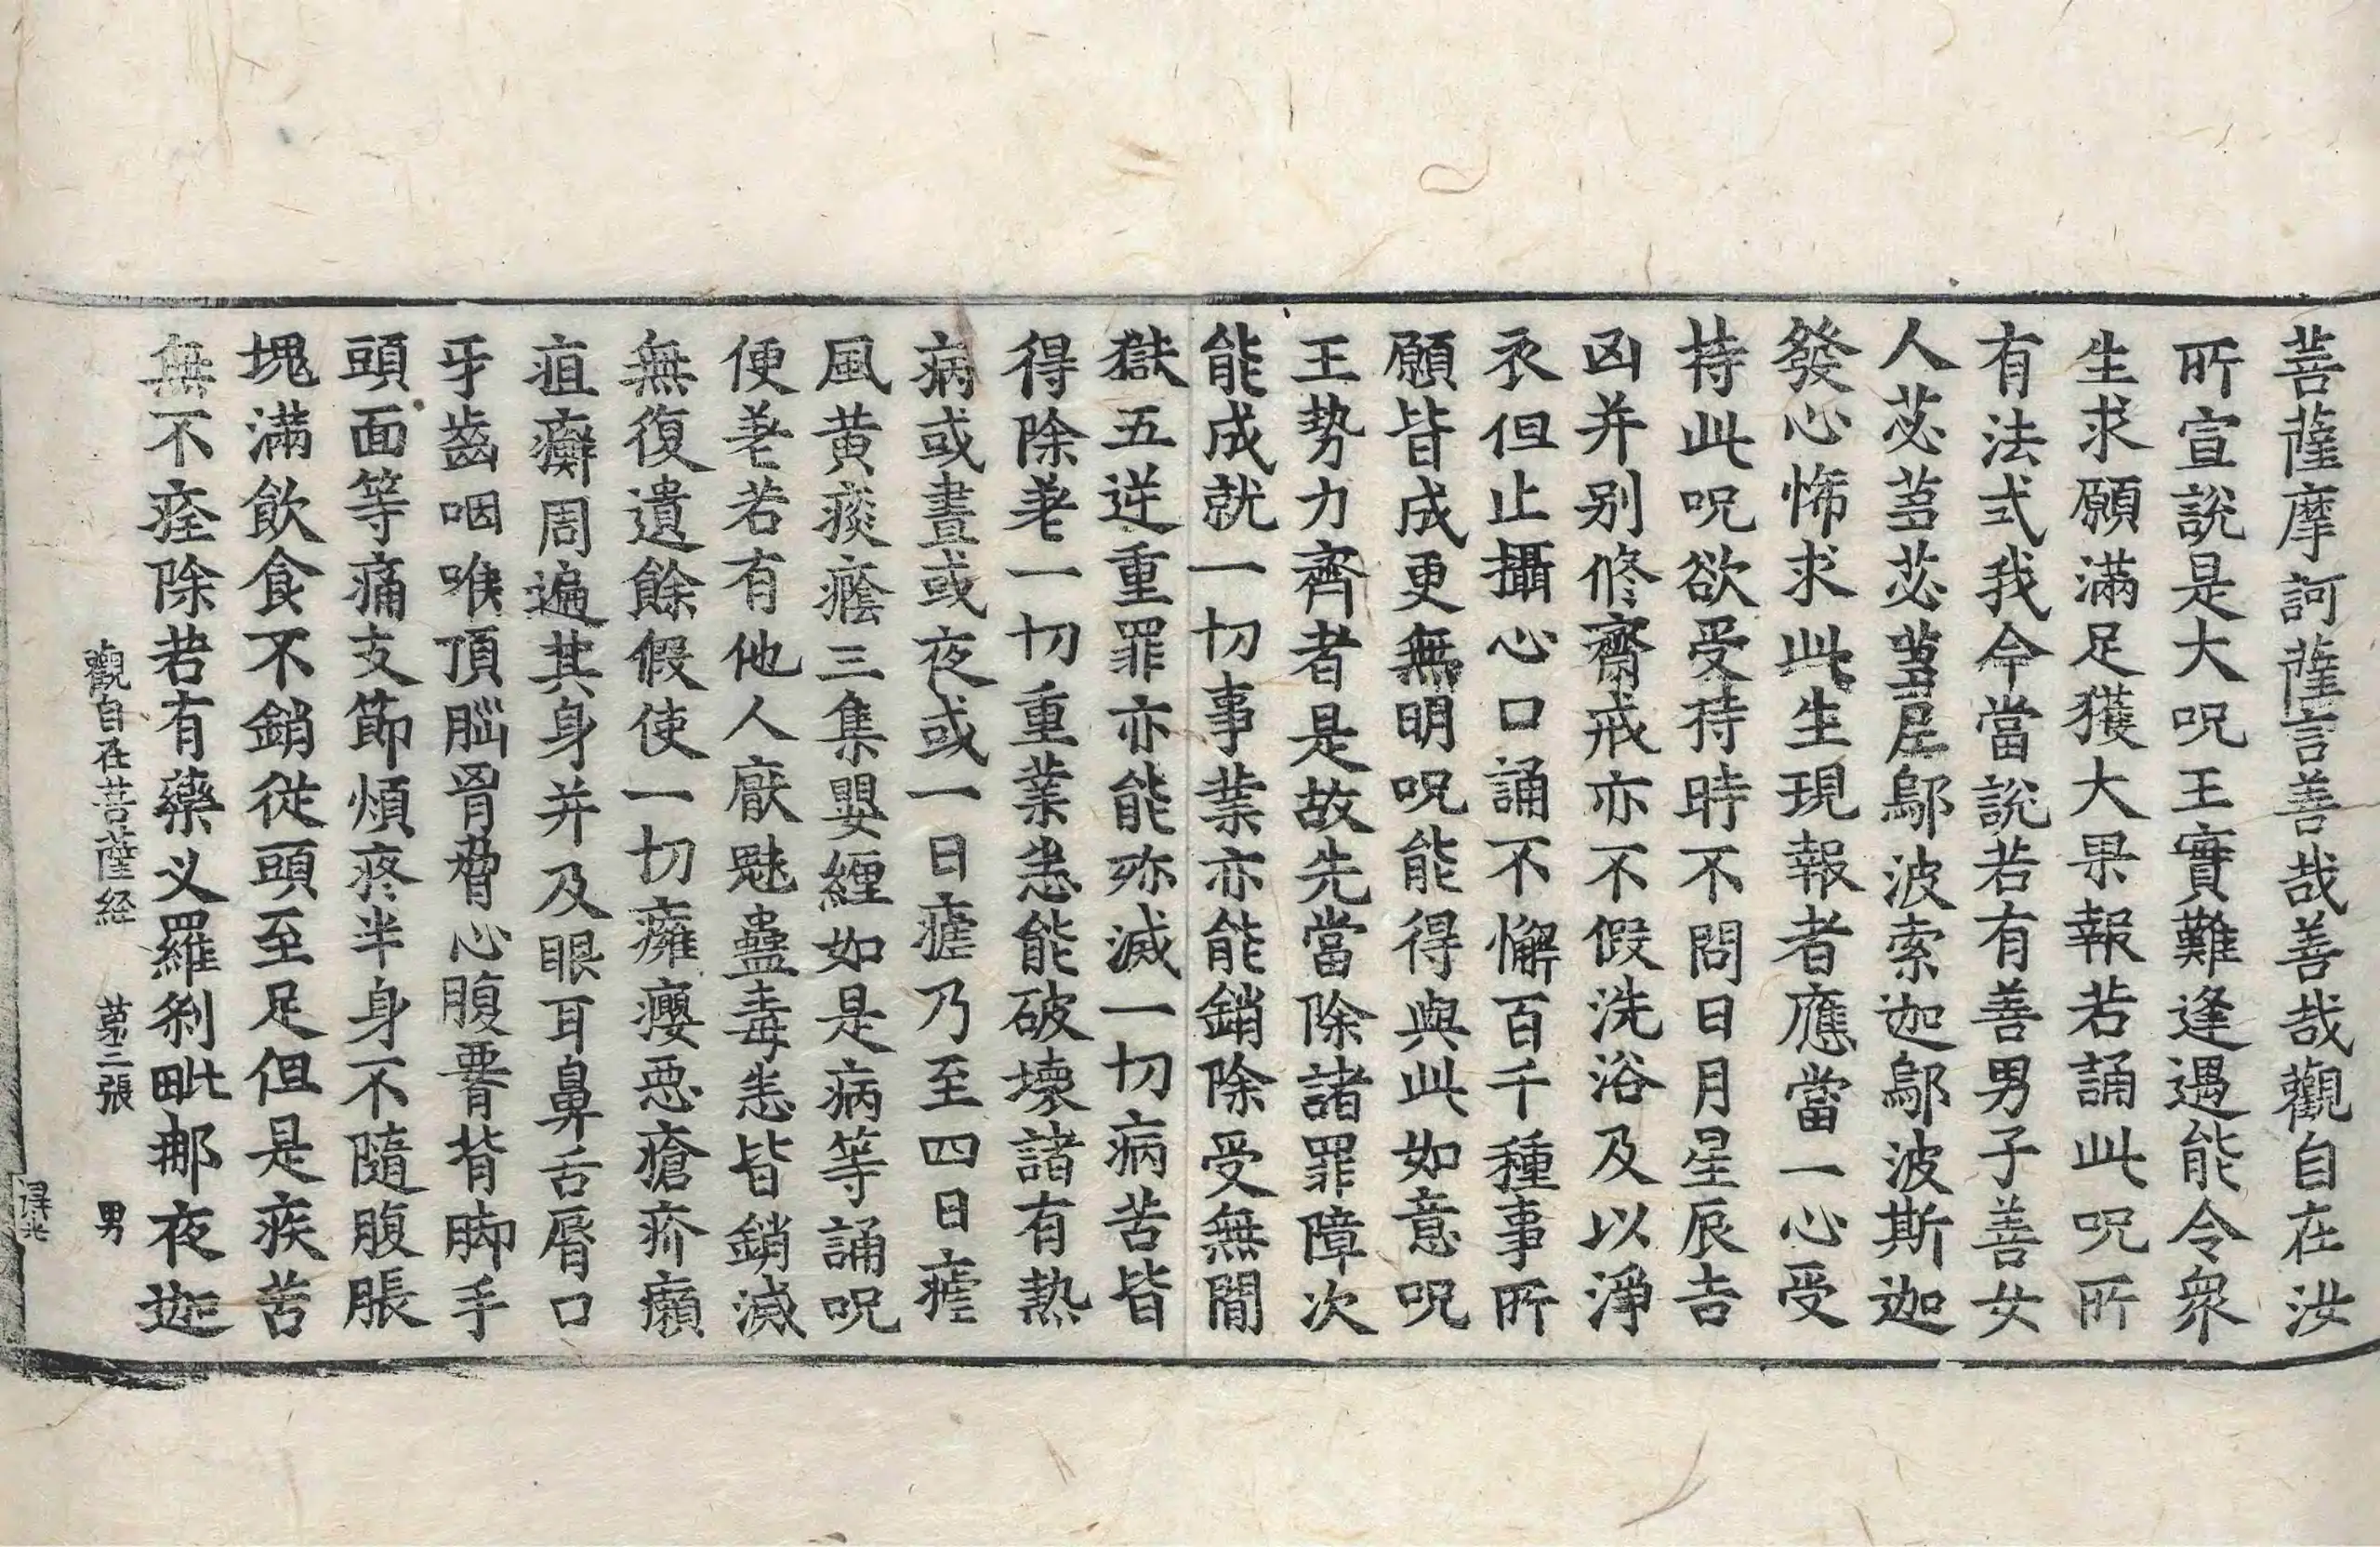 菩薩摩訶薩言善哉善哉觀自在汝
所宣說是大呪王實難逢遇能令衆
生求願滿足獲大果報若誦此呪所
有法式我今當說若有善男子善女
人苾芻苾芻尼鄔波索迦鄔波斯迦
發心悕求此生現報者應當一心受
持此呪欲受持時不問日月星辰吉
凶并别修齋戒亦不假洗浴及以淨
衣但止攝心口誦不懈百千種事所
願皆成更無明呪能得與此如意呪
王勢力齊者是故先當除諸罪障次
能成就一切事業亦能銷除受無間
獄五逆重罪亦能殄滅一切病苦皆
得除差一切重業悉能破壞諸有熱
病或晝或夜或一日瘧乃至四日瘧
風黄痰癊三集嬰纏如是病等誦呪
便差若有他人厭魅蠱毒悉皆銷滅
無復遺餘假使一切癰癭惡瘡疥癩
疽癬周遍其身并及眼耳鼻舌脣口
牙齒咽喉頂腦胷脅心腹署背脚手
頭面等痛支節煩疼半身不隨腹脹
塊滿飲食不銷從頭至足但是疾苦
無不痊除若有藥叉羅刹毗那夜迦
觀自在菩薩経 苐三張 男